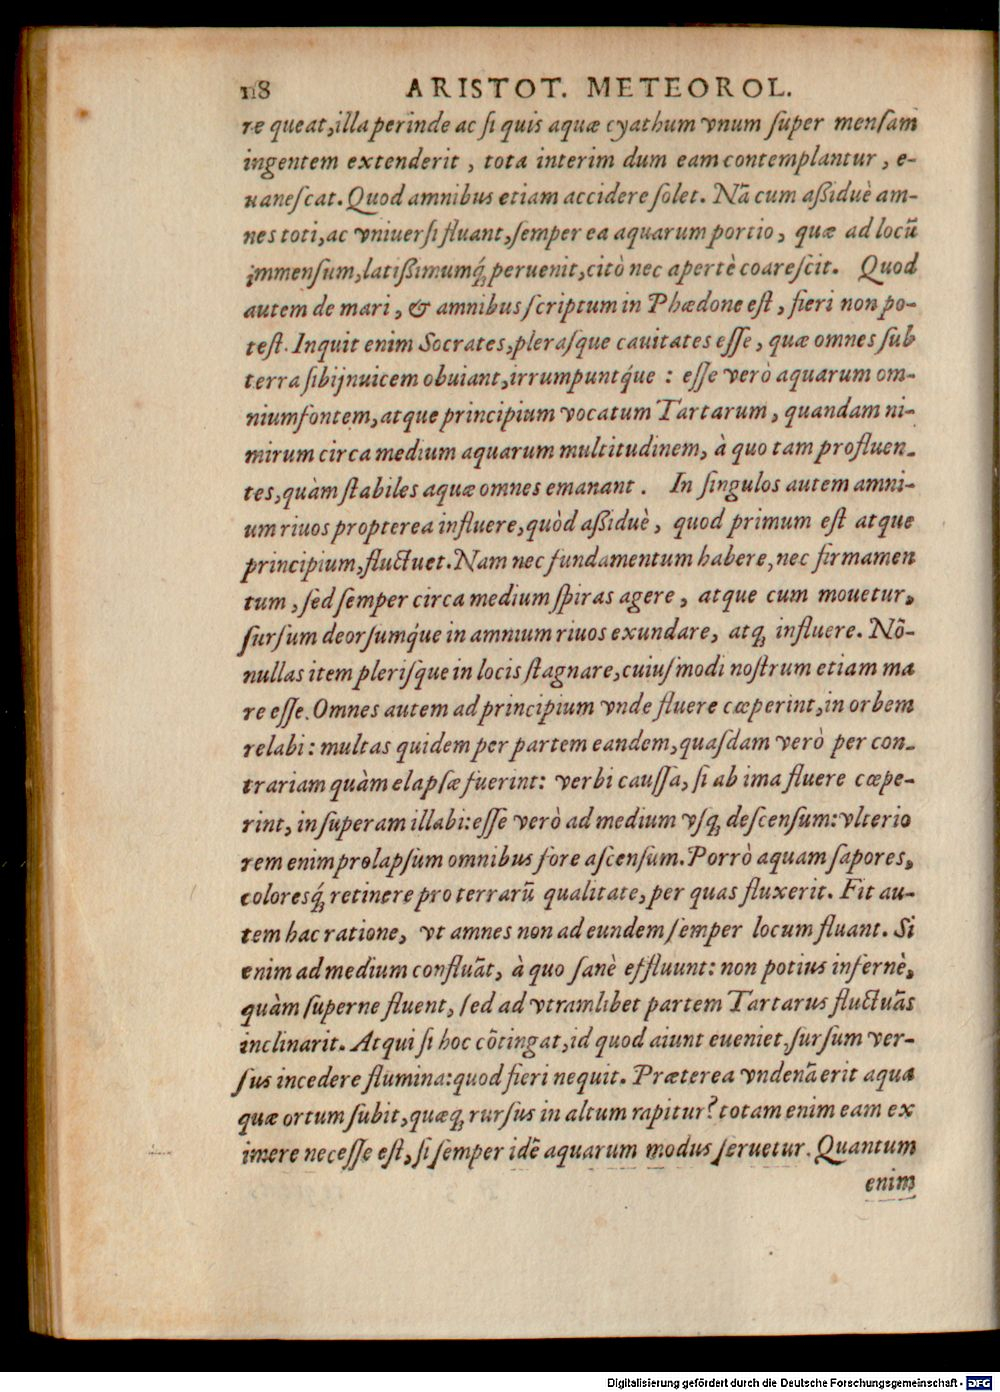 118 ARISTOT. METEOROL.
re queat, illa perinde ac ſi quis aquæ cyathum vnum ſuper menſam
ingentem extenderit, tota interim dum eam contemplantur, e-
uaneſcat. Quod amnibus etiam accidere ſolet. Nã cum aßiduè am-
nes toti, ac vniuerſi fluant, ſemper ea aquarum portio, quæ ad locũ
immenſum, latißimumq́; peruenit, citò nec apertè coareſcit. Quod
autem de mari, & amnibus ſcriptum in Phædone eſt, fieri non po-
teſt. Inquit enim Socrates, pleraſque cauitates eſſe, quæ omnes ſub
terra ſibijnuicem obuiant, irrumpuntq́ue: eſſe verò aquarum om-
nium fontem, atque principium vocatum Tartarum, quandam ni-
mirum circa medium aquarum multitudinem, à quo tam profluen-
tes, quàm ſtabiles aquæ omnes emanant. In ſingulos autem amni-
um riuos propterea influere, quòd aßiduè, quod primum eſt atque
principium, fluctuet. Nam nec fundamentum habere, nec firmamen
tum, ſed ſemper circa medium ſpiras agere, atque cum mouetur,
ſurſum deorſumq́ue in amnium riuos exundare, atq; influere. Nõ-
nullas item pleriſque in locis ſtagnare, cuiuſmodi noſtrum etiam ma
re eſſe. Omnes autem ad principium vnde fluere cœperint, in orbem
relabi: multas quidem per partem eandem, quaſdam verò per con-
trariam quàm elapſæ fuerint: verbi cauſſa, ſi ab ima fluere cœpe-
rint, in ſuperam illabi: eſſe verò ad medium vſq; deſcenſum: vlterio
rem enim prolapſum omnibus fore aſcenſum. Porrò aquam ſapores,
coloresq́; retinere pro terrarũ qualitate, per quas fluxerit. Fit au-
tem hac ratione, vt amnes non ad eundem ſemper locum fluant. Si
enim ad medium confluãt, à quo ſanè effluunt: non potius infernè,
quàm ſuperne fluent, ſed ad vtramlibet partem Tartarus fluctuãs
inclinarit. Atqui ſi hoc cõtingat, id quod aiunt eueniet, ſurſum ver-
ſus incedere flumina: quod fieri nequit. Præterea vndenã erit aqua
quæ ortum ſubit, quæq; rurſus in altum rapitur? totam enim eam ex
imere neceſſe eſt, ſi ſemper idẽ aquarum modus ſeruetur. Quantum
enim
Digitalisierung gefördert durch die Deutsche Forschungsgemeinschaft - DFG